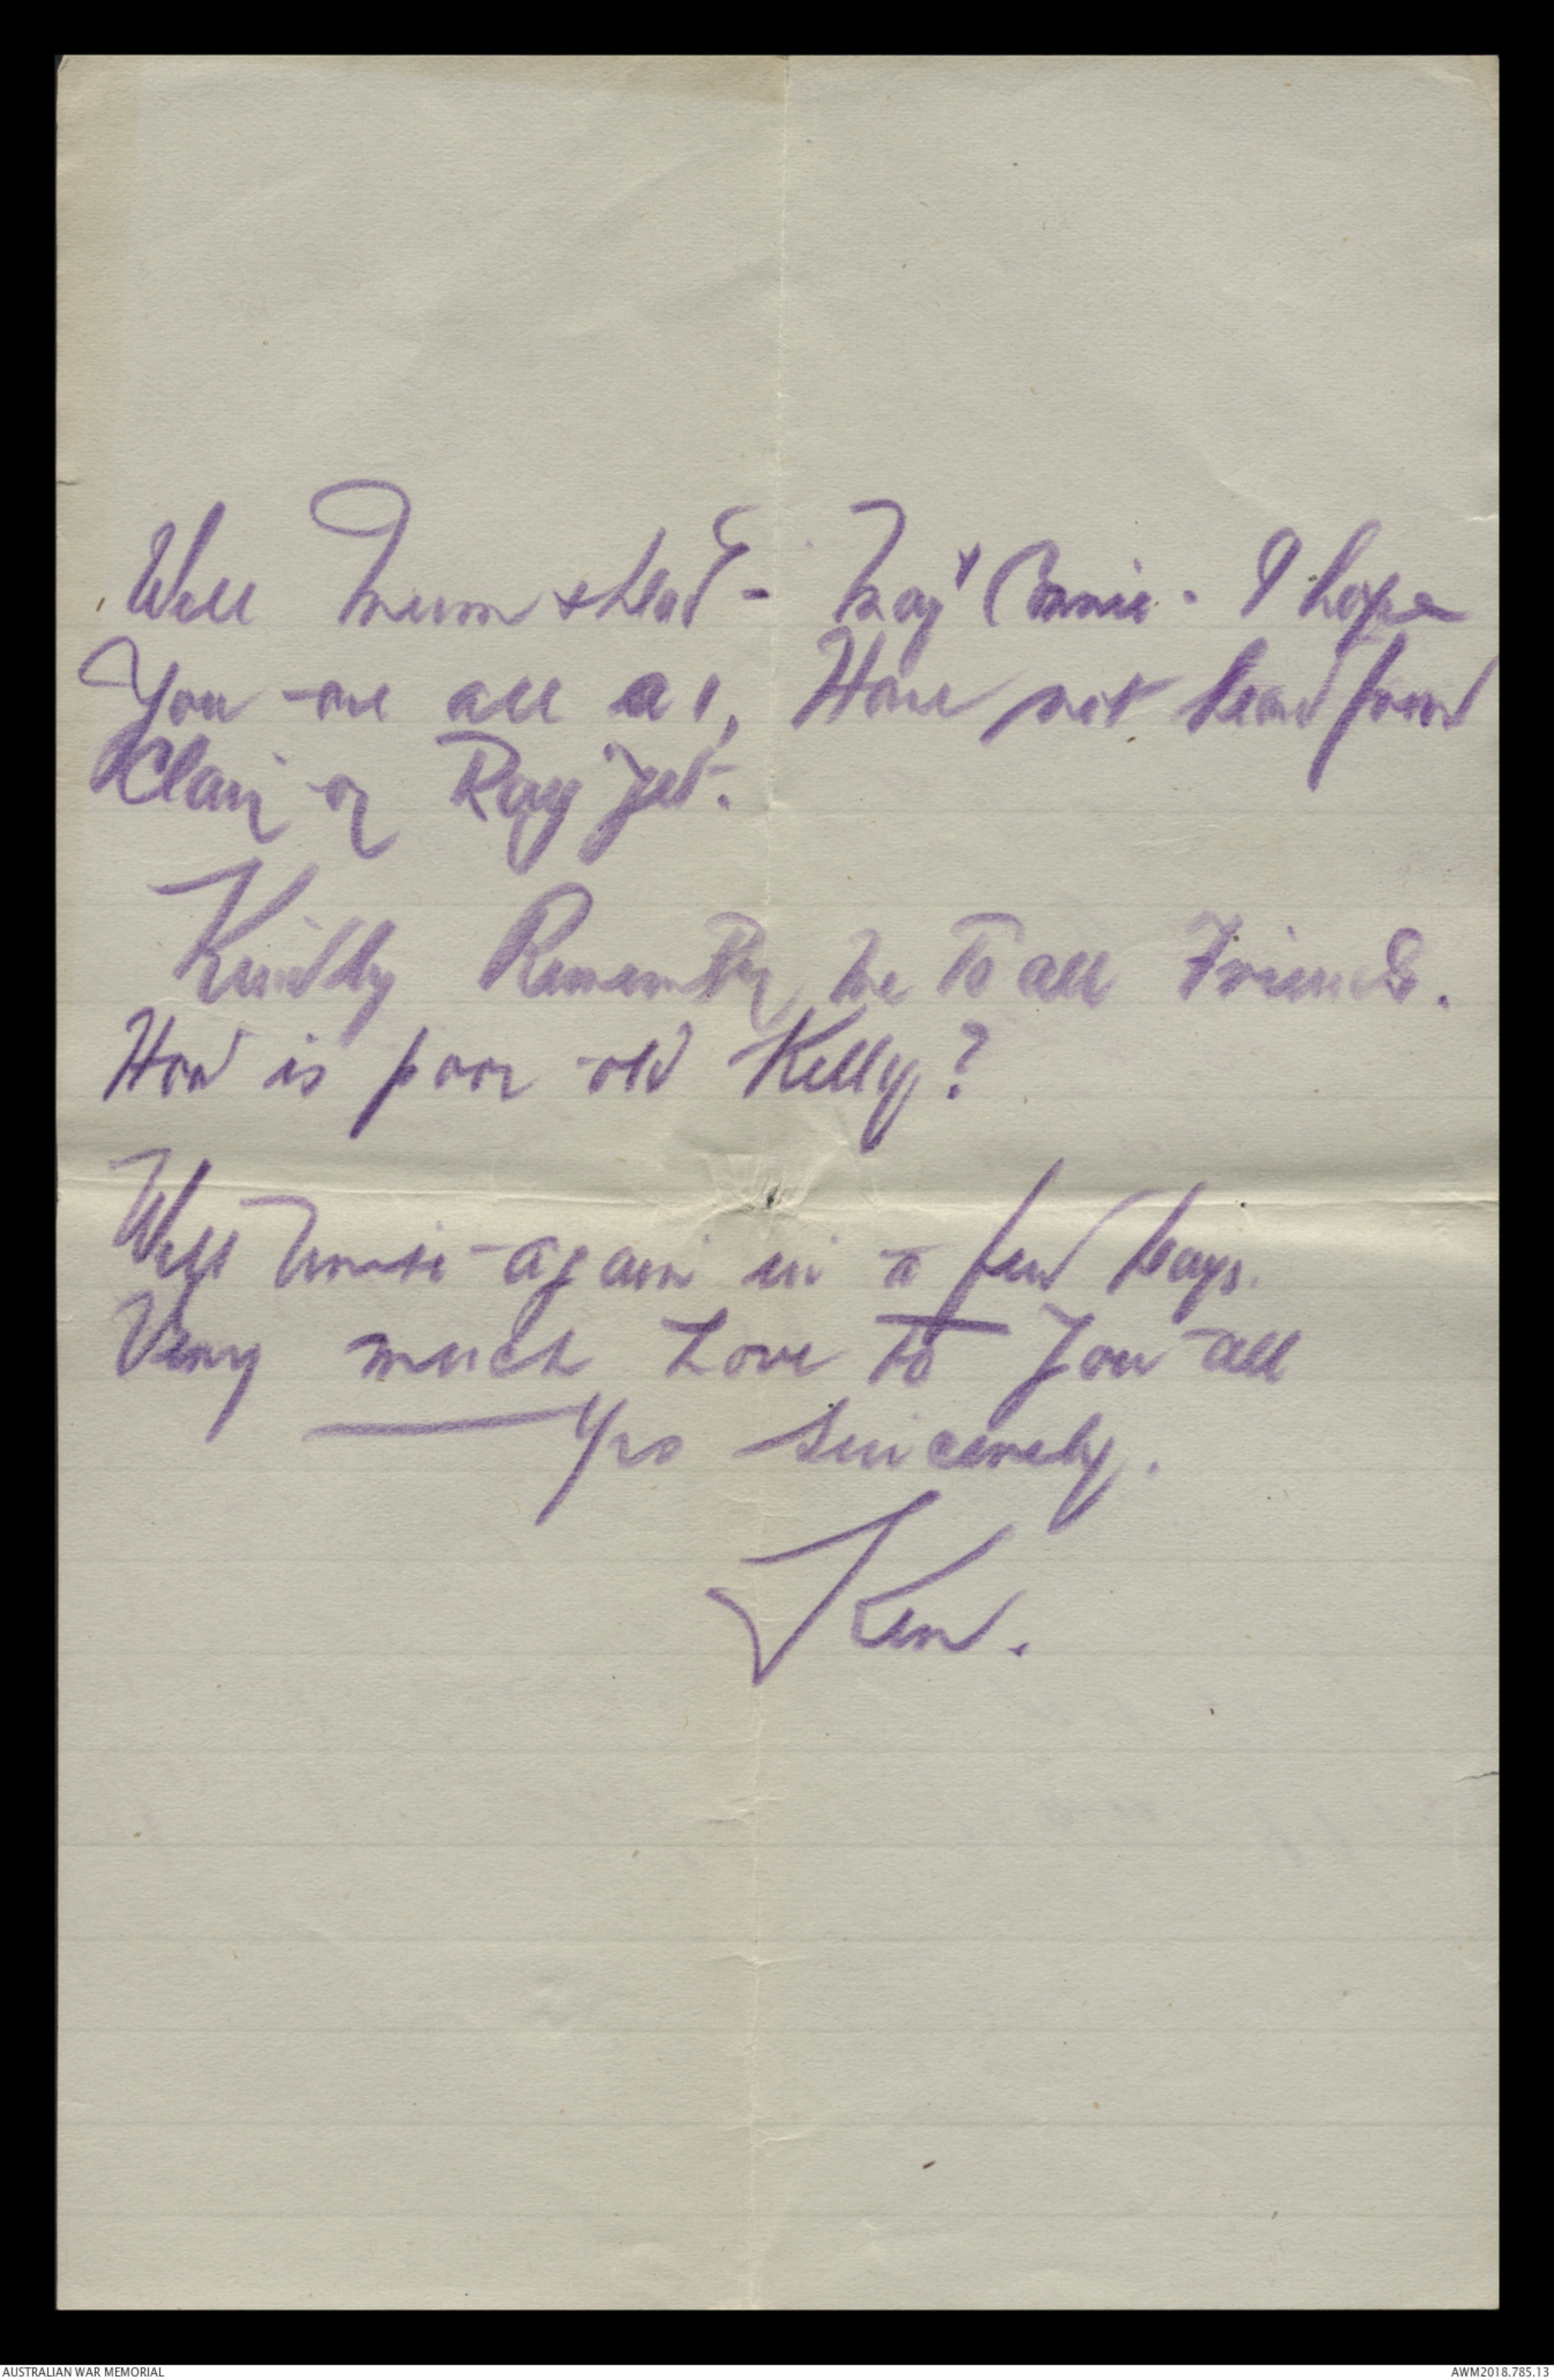 Well Mum & Dad - May & Connie. I hope
You are all a1, Have not heard from
Clair or Ray yet.
Kindly Remember me to all Friends.
How is poor old Kelly?
Will write again in a few days.
Very much Love to You all
Yrs Sincerely.
Ken.
AUSTRALIAN WAR MEMORIAL
AWM2018.785.13